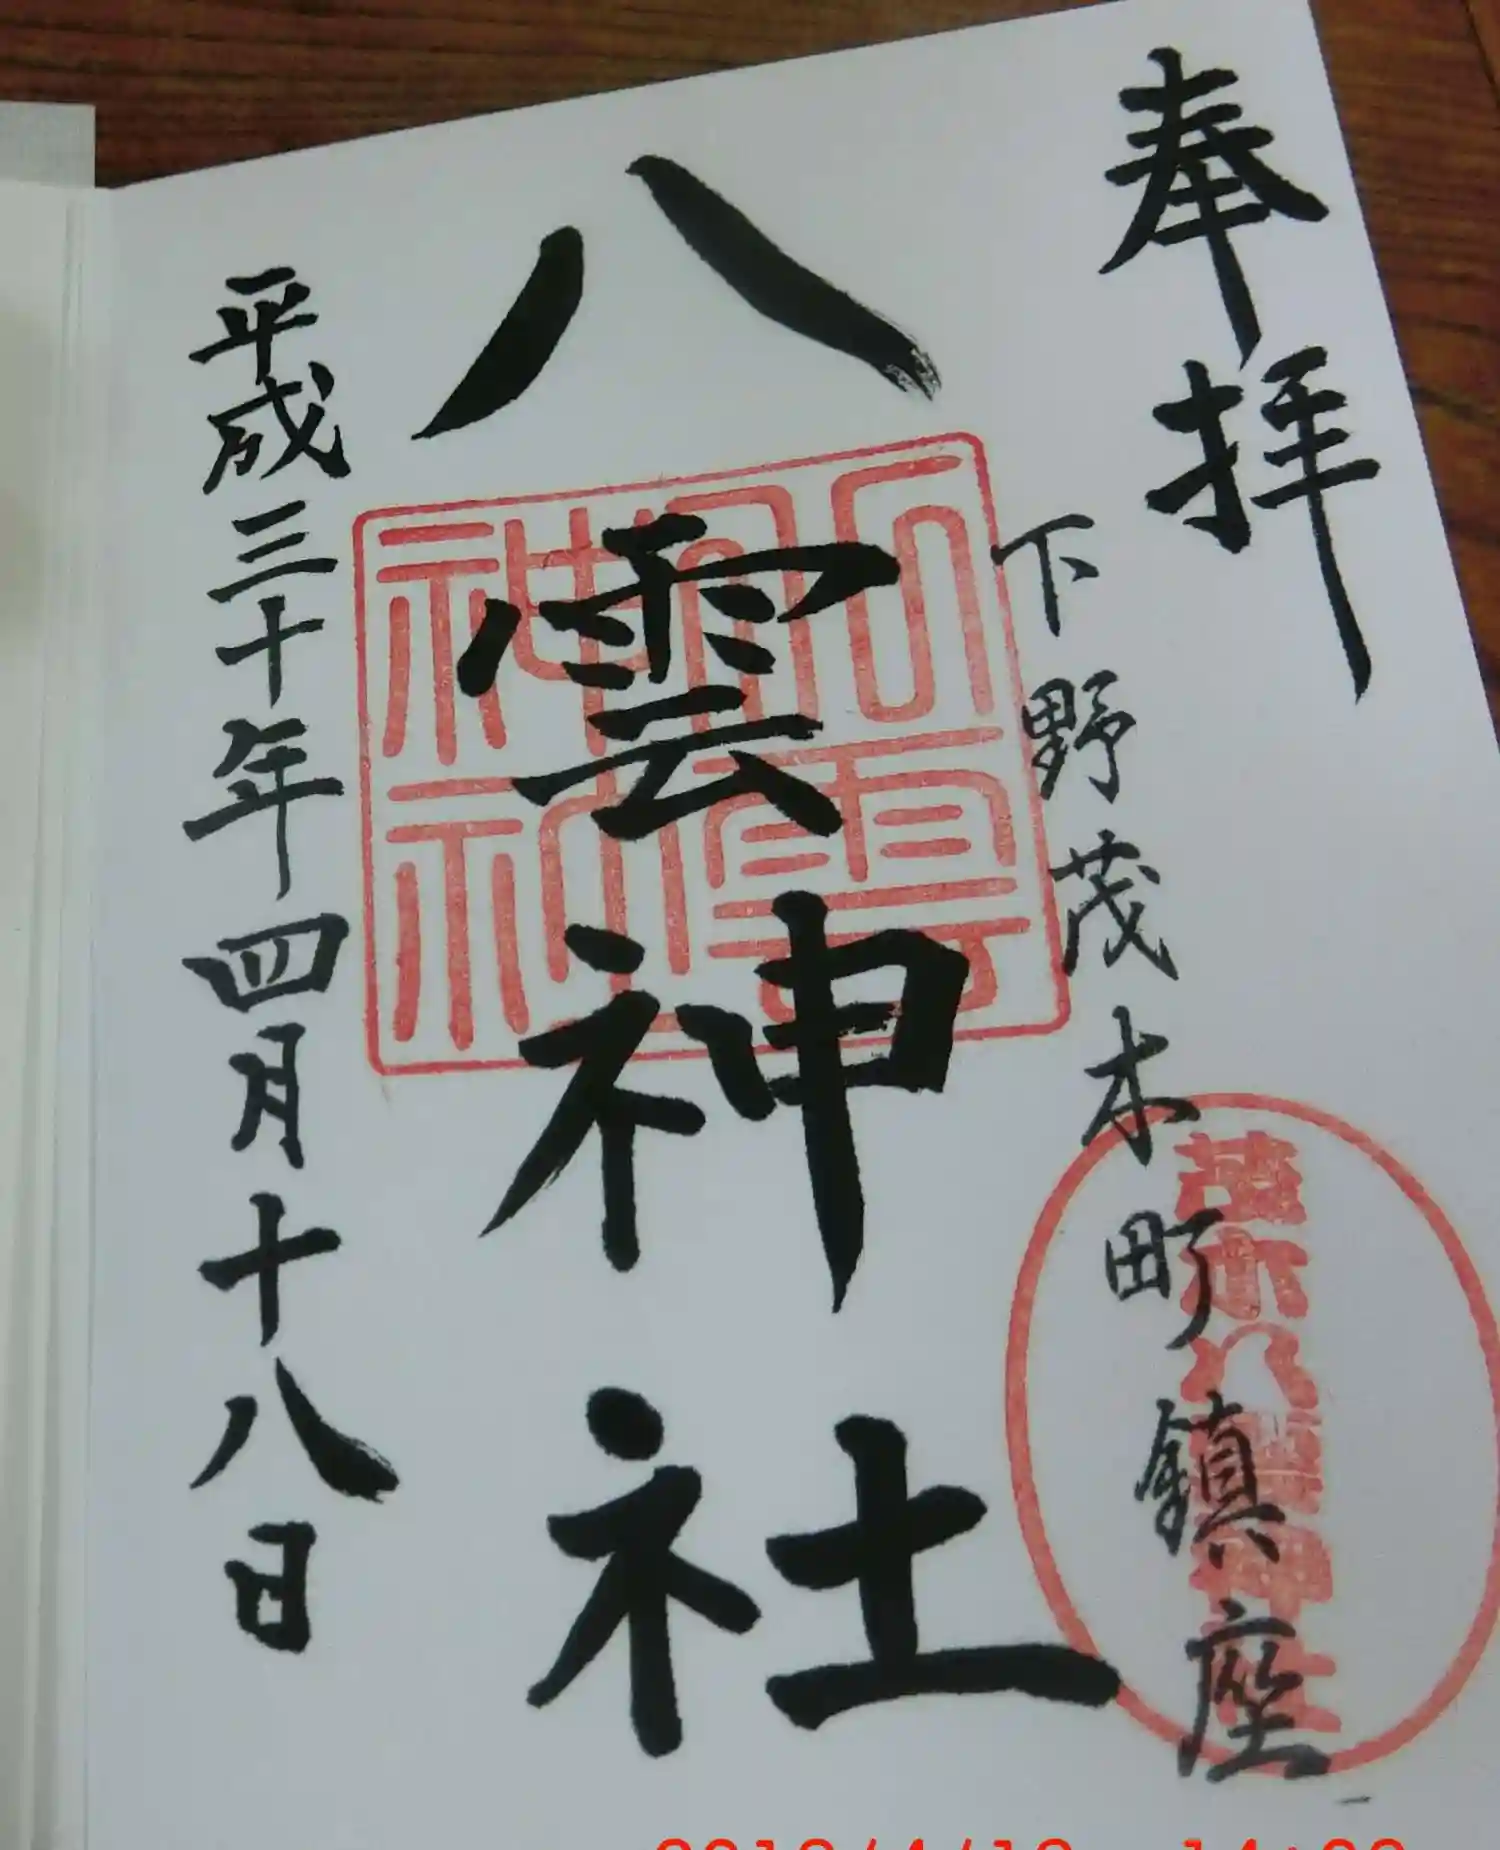 奉拝
下野茂木町鎮座
茂木八雲神社
八雲神社
平成三十年四月十八日